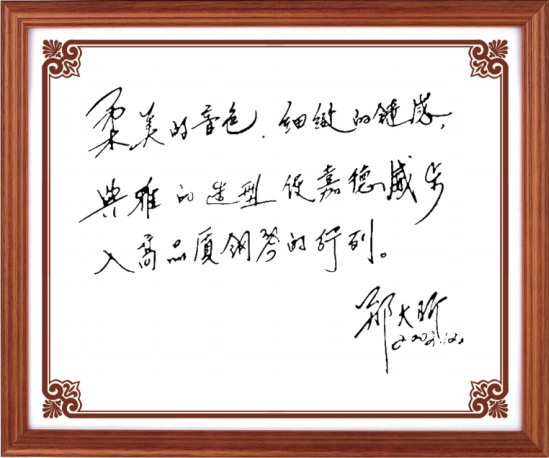 柔美的音色、细致的键感，
典雅的造型使嘉德威步
入高品质钢琴的行列。
郑大昕